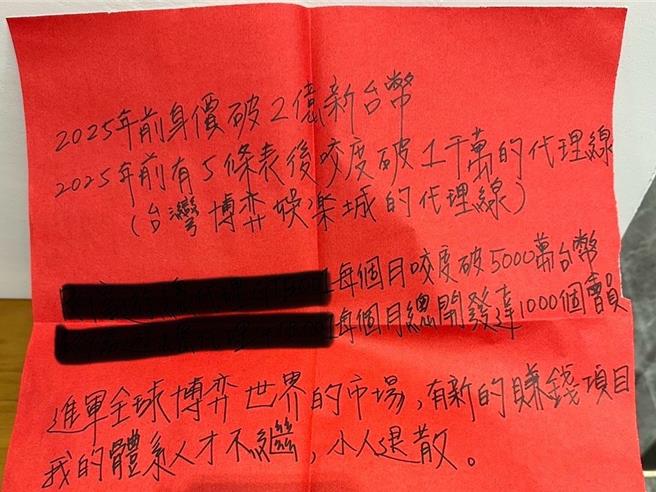 2025年前身價破2億新台幣
2025年前有5條表後咬度破1千萬的代理線
(台灣博弈娛楽城的代理線)
每個月咬度破5000萬台幣
每個月總開發達1000個會員
進軍全球博弈世界的市場,有新的賺錢項目
我的體系人才不繼,小人退散。